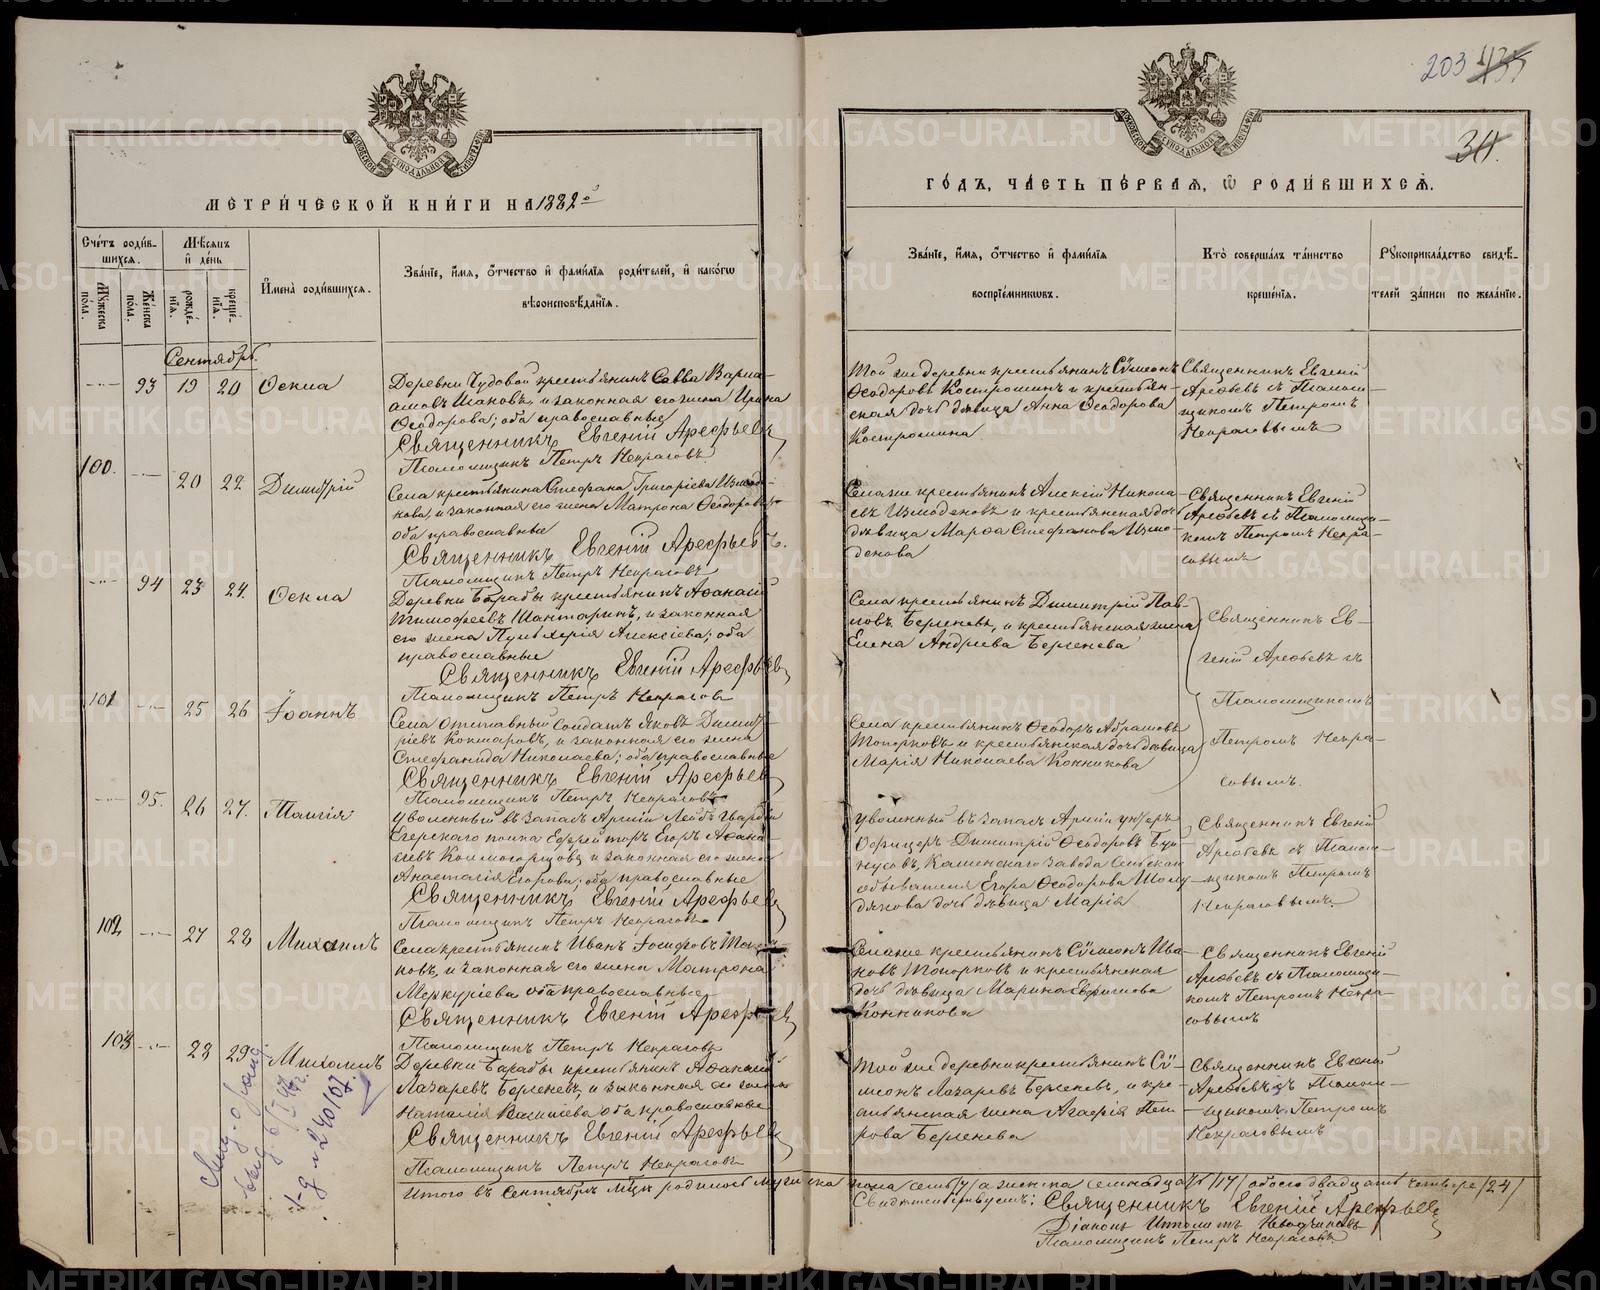 203
34.
МЕТРИ́ЧЕСКОЙ КНИ́ГИ НА 1882
ГО́ДЪ, ЧА́СТЬ ПЕ́РВАЯ, Ѿ РОДИ́ВШИХСѦ.
Сче́тъ роди́в-
шихся.
Мѣ́сяцъ
и́ де́нь
Му́жеска
по́ла.
Же́нска
по́ла.
рожде́-
нїя.
креще́-
нїя.
И́мена̀ роди́вшихся.
Зва́нїе, и́мя, ѻ́тчество и́ фами́лїя роди́телей, и́ како́гѡ
вѣроисповѣ́данїя.
Зва́нїе, и́мя, ѻ́тчество и́ фами́лїя
воспрїе́мникѡвъ.
Кто̀ соверша́лъ та́инство
креще́нїя.
Рꙋкоприкла́дство свидѣ́-
телей за́писи по жела́нїю.
Сентябрь.
93 19 20 Ѳекла
Деревни Чудовой крестьянинъ Савва Варла-
амовъ и законная его жена Ирина
Ѳеодорова; оба православные
Священникъ Евгеній Арефьевъ
Псаломщикъ Петръ Некрасовъ
Той же деревни крестьянинъ Сѵмеонъ
Ѳеодоровъ Костроминъ и крестьян-
ская дочь дѣвица Анна Ѳеодорова
Костромина
Священникъ Евгеній
Арефьевъ съ Псалом-
щикомъ Петромъ
Некрасовымъ
100. 20 22 Димитрій
Села крестьянинъ Стефанъ Григоріевъ Измоде-
новъ, и законная его жена Матрона Ѳеодорова
оба православные
Священникъ Евгеній Арефьевъ.
Псаломщикъ Петръ Некрасовъ
Села же крестьянинъ Алексій Никола-
евъ Измоденовъ и крестьянская дочь
дѣвица Марѳа Стефанова Измо-
денова
Священникъ Евгеній
Арефьевъ съ Псаломщи-
комъ Петромъ Некра-
совымъ
94 23 24. Ѳекла
Деревни Барабы крестьянинъ Аѳанасій
Тимофеевъ Шантаринъ, и законная
его жена Пульхерія Алексіева; оба
православные
Священникъ Евгеній Арефьевъ
Псаломщикъ Петръ Некрасовъ
Села крестьянинъ Димитрій Пав-
ловъ Бергеневъ, и крестьянская жена
Елена Андреева Бергенева
Священникъ Ев-
геній Арефьевъ съ
Псаломщикомъ
Петромъ Некра-
совымъ.
101 25 26 Іоаннъ
Села Отставный Солдатъ Яковъ Димит-
ріевъ Кокшаровъ, и законная его жена
Стефанида Николаева; оба православные
Священникъ Евгеній Арефьевъ
Псаломщикъ Петръ Некрасовъ
Села крестьянинъ Ѳеодоръ Абрамовъ
Топорковъ и крестьянская дочь дѣвица
Марія Николаева Конникова
95. 26 27. Таисія
Уволенный въ запасъ Арміи Лейбъ Гвардіи
Егерскаго полка Ефрейторъ Егоръ Аѳана-
сіевъ Колмогорцовъ и законная его жена
Анастасія Егорова; оба православные
Священникъ Евгеній Арефьевъ
Псаломщикъ Петръ Некрасовъ
Уволенный въ запасъ Арміи унтеръ
Офицеръ Димитрій Ѳеодоровъ
Каменскаго завода Сельскаго
обывателя Егора Ѳеодорова
дочь дѣвица Марія
Священникъ Евгеній
Арефьевъ съ Псалом-
щикомъ Петромъ
Некрасовымъ.
102 27 28 Михаилъ
Села крестьянинъ Иванъ Іосифовъ Топор-
ковъ, и законная его жена Матрона
Меркуріева оба православные
Священникъ Евгеній Арефьевъ
Псаломщикъ Петръ Некрасовъ
Села же крестьянинъ Сѵмеонъ Ива-
новъ Топорковъ и крестьянская
дочь дѣвица Марина
Конникова
Священникъ Евгеній
Арефьевъ съ Псаломщи-
комъ Петромъ Некра-
совымъ
103 28 29 Михаилъ
Деревни Барабы крестьянинъ Аѳанасій
Лазаревъ Бергеневъ, и законная его жена
Наталія Васильева оба православные
Священникъ Евгеній Арефьевъ
Псаломщикъ Петръ Некрасовъ
Той же деревни крестьянинъ Сѵ-
меонъ Лазаревъ Бергеневъ, и кре-
стьянская жена Агафія Пет-
рова Бергенева
Священникъ Евгеній
Арефьевъ съ Псалом-
щикомъ Петромъ
Некрасовымъ
Итого въ Сентябрѣ мѣсяцѣ родилось мужеска пола семь /7/ а женска семнадцать /17/ обоего двадцать четыре /24/
Свидѣтельствуемъ: Священникъ Евгеній Арефьевъ
Діаконъ Ипполитъ
Псаломщикъ Петръ Некрасовъ
METRIKI.GASO-URAL.RU